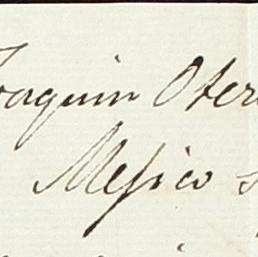 Joaquin Oter
Mejico s